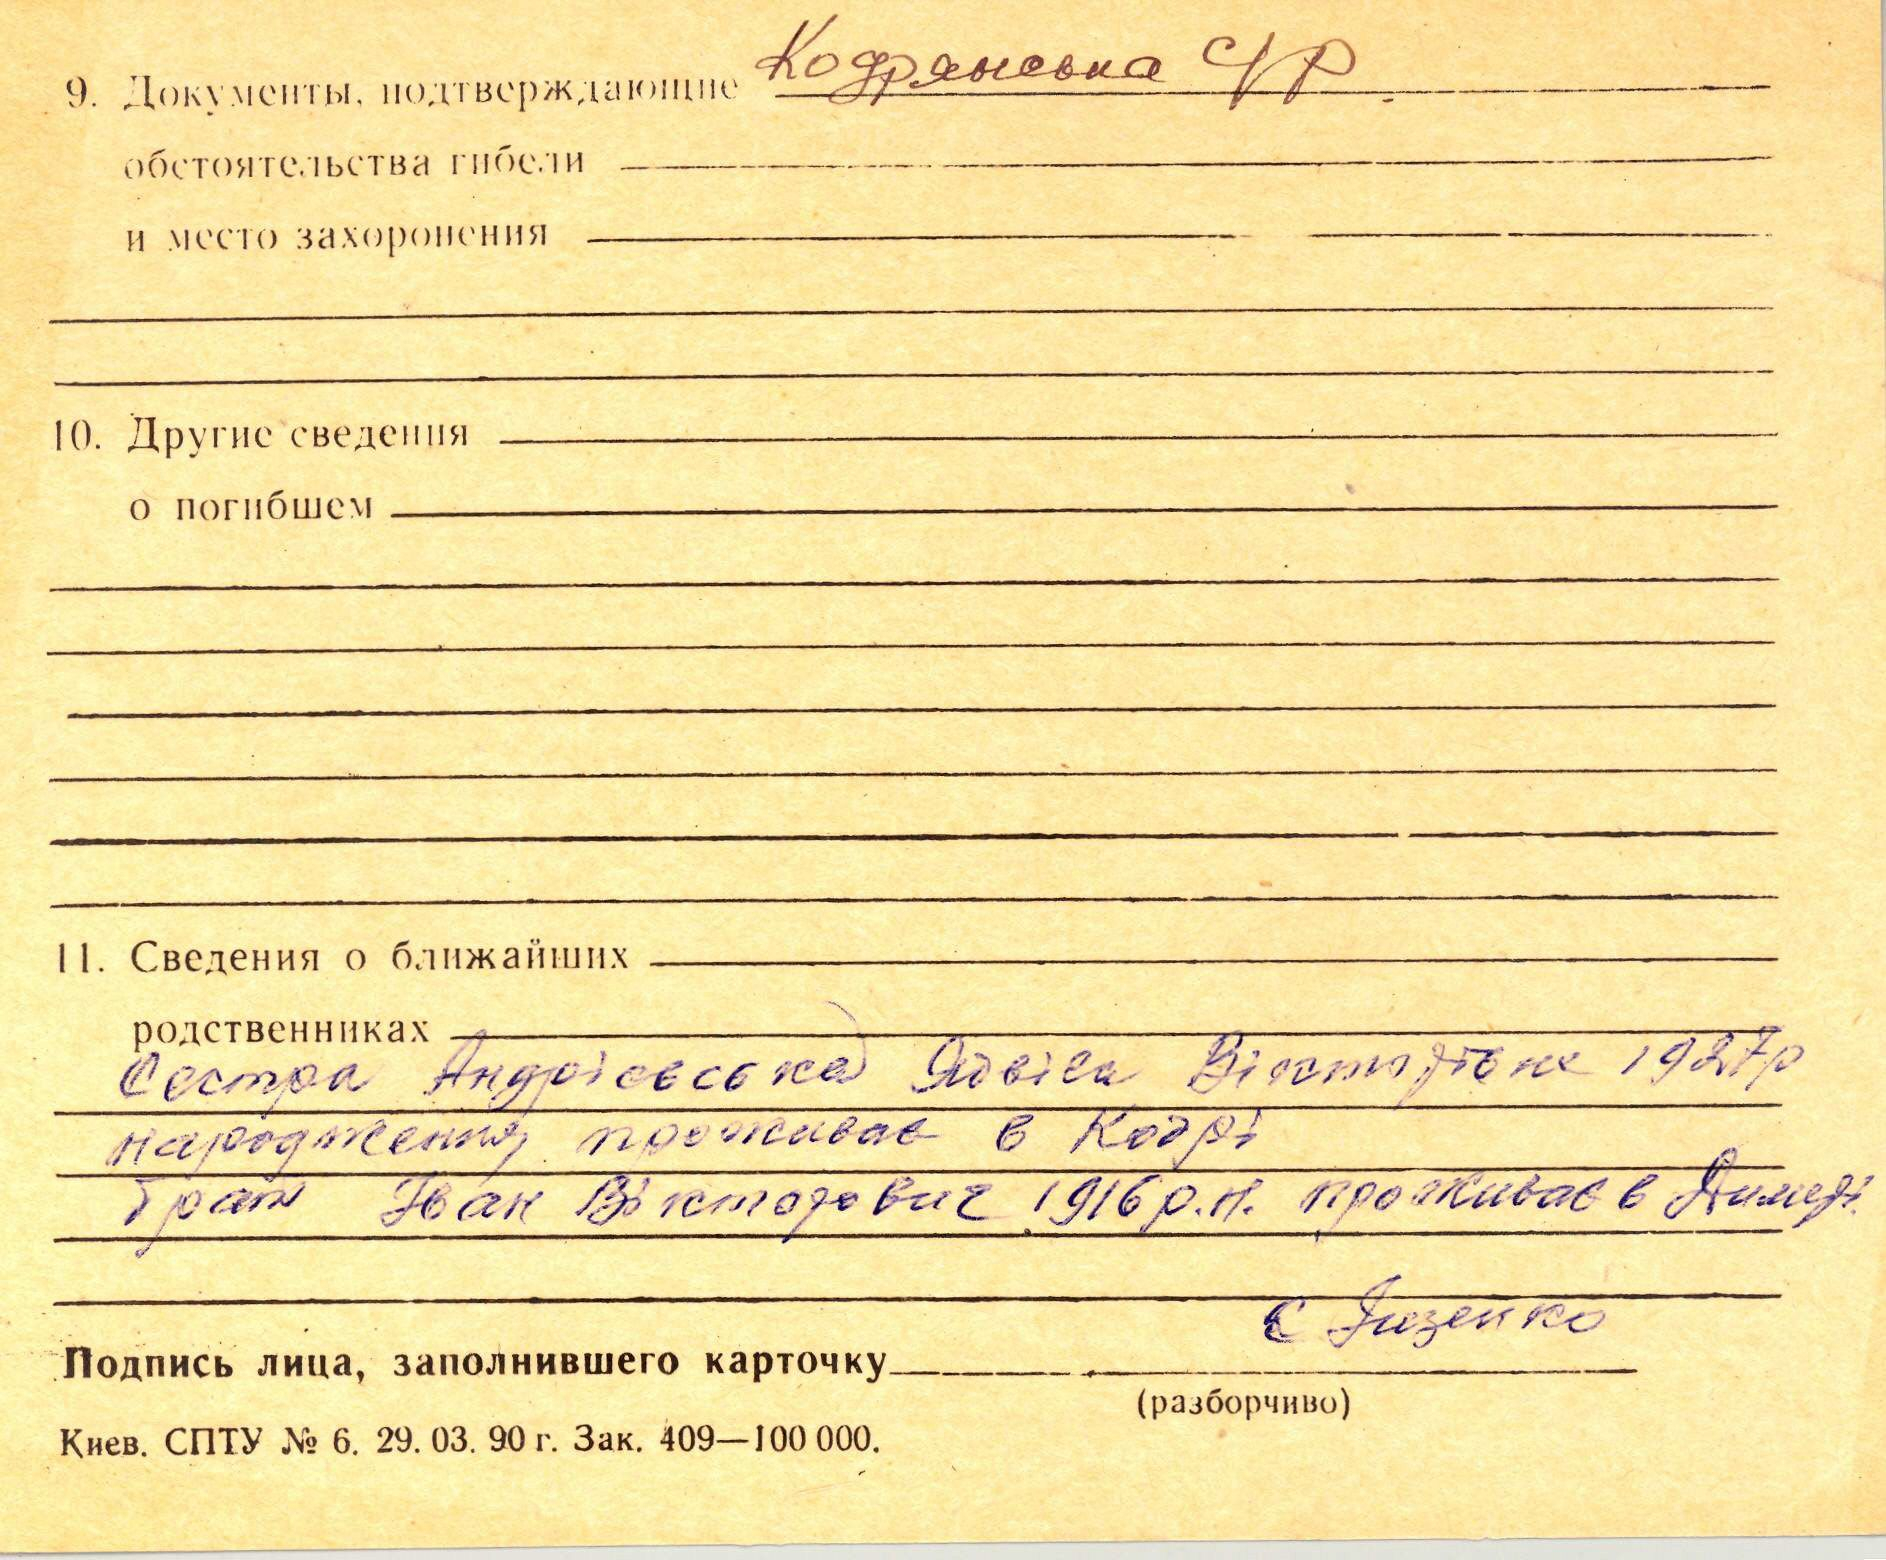 9. Документы, подтверждающие Кодрянська С/Р
обстоятельства гибели
и место захоронения
10. Другие сведения
о погибшем
11. Сведения о ближайших
родственниках
Сестра Андрієвська Ядвіга Вікторівна 1927р
народження проживає в Кодрі
брат Іван Вікторович 1916 р.н. проживає в Димері.
Подпись лица, заполнившего карточку
(разборчиво)
Киев. СПТУ № 6. 29. 03. 90 г. Зак. 409—100 000.